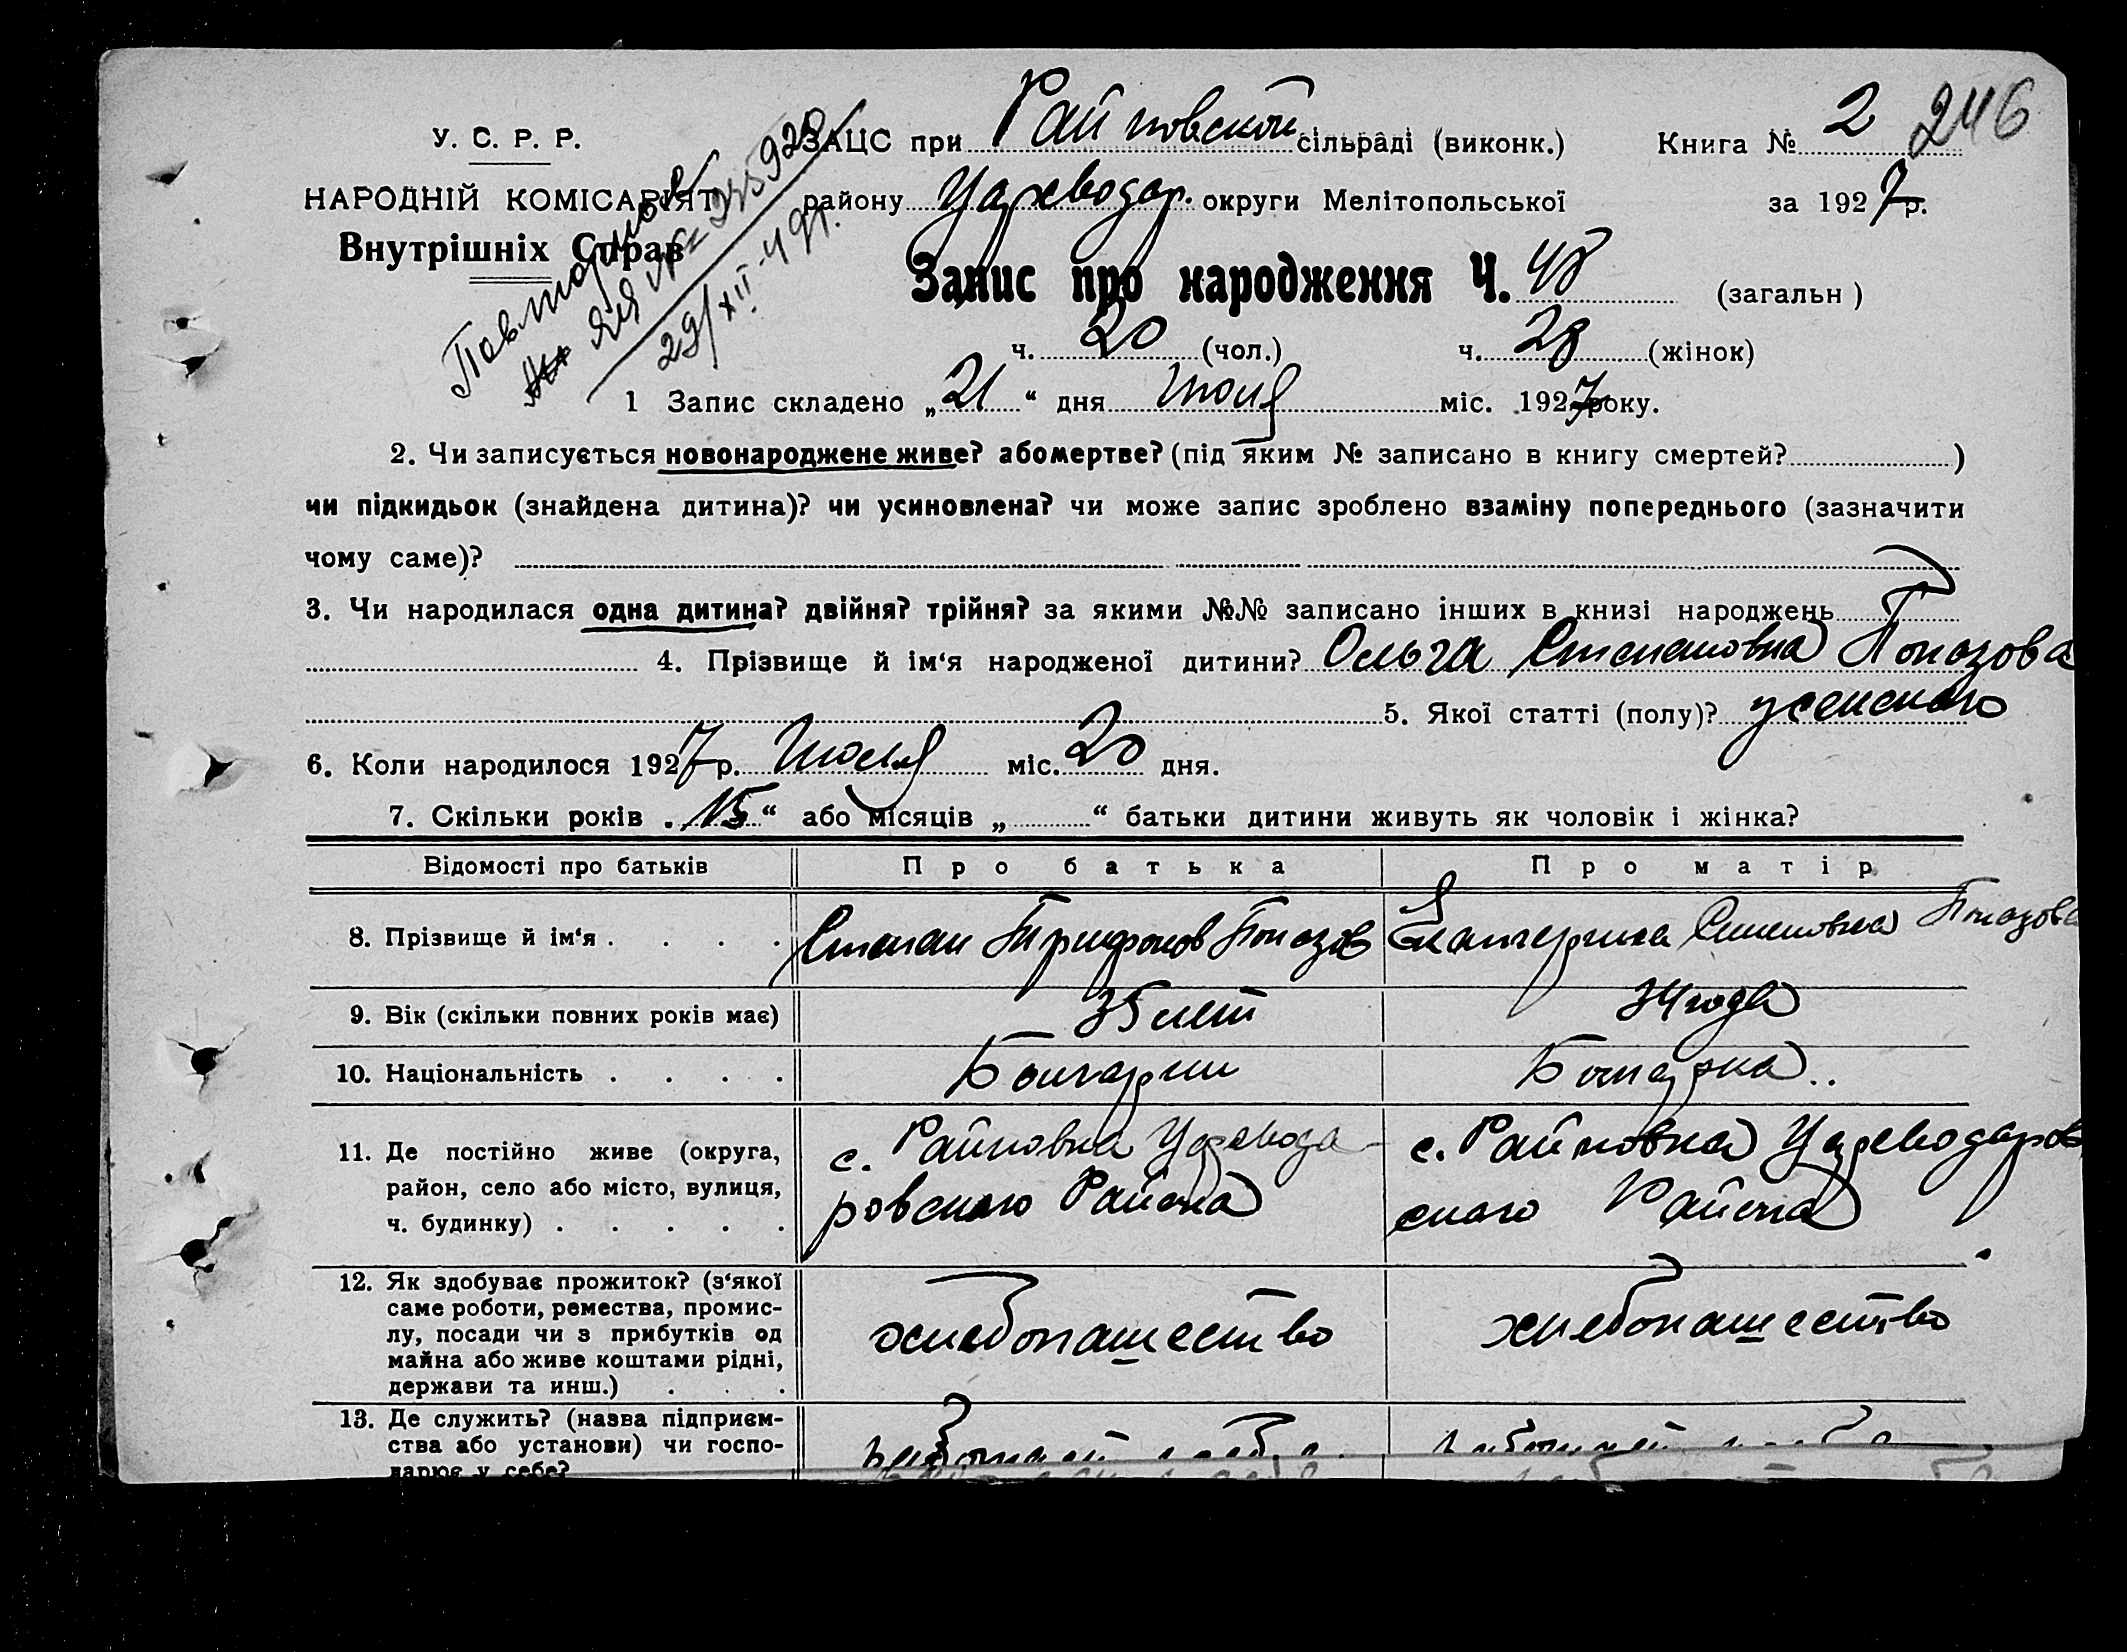 У. С. Р. Р.
НАРОДНІЙ КОМІСАРІЯТ
Внутрішніх Справ
Повторное
ЯЯ № 245920
29/XII-49г.
ЗАЦС при Райновской сільраді (виконк.) Книга № 2 246
району Цареводар. округи Мелітопольської за 1927 р.
Запис про народження Ч. 48 (загальн)
ч. 20 (чол.) ч. 28 (жінок)
1 Запис складено „21“ дня Июля міс. 1927 року.
2. Чи записується новонароджене живе? або мертве? (під яким № записано в книгу смертей? )
чи підкидьок (знайдена дитина)? чи усиновлена? чи може запис зроблено взаміну попереднього (зазначити
чому саме)?
3. Чи народилася одна дитина? двійня? трійня? за якими №№ записано інших в книзі народжень
4. Прізвище й ім‘я народженої дитини? Ольга Степановна Попозова
5. Якої статті (полу)? женского
6. Коли народилося 1927 р. Июля міс. 20 дня.
7. Скільки років „15“ або місяців „ “ батьки дитини живуть як чоловік і жінка?
Відомості про батьків Про батька Про матір
8. Прізвище й ім‘я . . . . Степан Трифонов Попозов Екатерина Семеновна Попозова
9. Вік (скільки повних років має) 35 лет 34 года
10. Національність . . . . Болгарин Болгарка..
11. Де постійно живе (округа, район, село або місто, вулиця, ч. будинку) . . . . . с. Райновка Царевода-
ровского Района с. Райновка Цареводаров
ского Района
12. Як здобуває прожиток? (з‘якої
саме роботи, ремества, промис-
лу, посади чи з прибутків од
майна або живе коштами рідні,
держави та инш.) . . . хлебопашество хлебопашество
13. Де служить? (назва підприєм-
ства або установи) чи госпо-
дарює у себе?